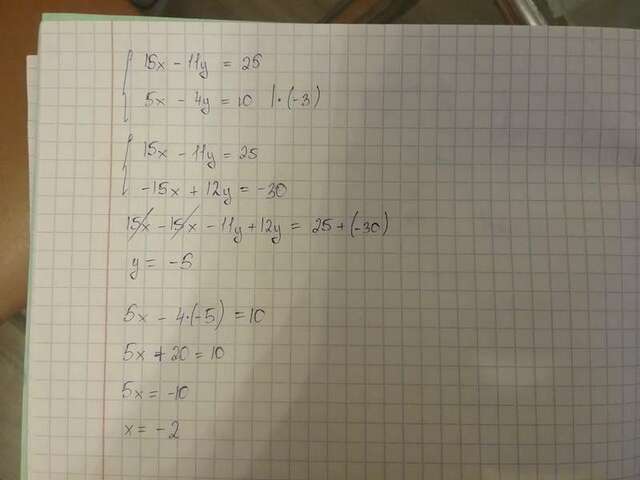 15x - 11y = 25
5x - 4y = 10 | · (-3)
15x - 11y = 25
-15x + 12y = -30
15x - 15x - 11y + 12y = 25 + (-30)
y = -5
5x - 4 · (-5) = 10
5x + 20 = 10
5x = -10
x = -2